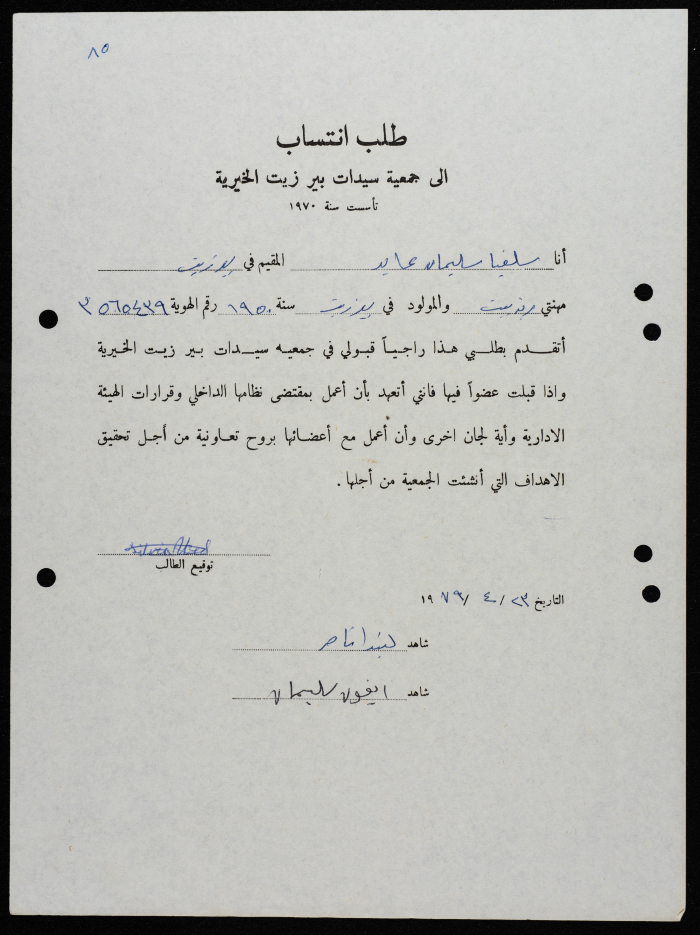 ٨٥
طلب انتساب
الى جمعية سيدات بير زيت الخيرية
تأسست سنة ١٩٧٠
أنا سلفيا سليمان عايد المقيم في بيرزيت
مهنتي ربة بيت والمولود في بيرزيت سنة ١٩٥٠ رقم الهوية ٣٥٦٥٤٣٩
أتقدم بطلبي هذا راجياً قبولي في جمعيه سيدات بير زيت الخيرية
واذا قبلت عضواً فيها فانني أتعهد بأن أعمل بمقتضى نظامها الداخلي وقرارات الهيئة
الادارية وأية لجان اخرى وأن أعمل مع أعضائها بروح تعاونية من أجل تحقيق
الاهداف التي أنشئت الجمعية من أجلها .
توقيع الطالب
التاريخ ٢٣/ ٤ / ١٩٧٩
شاهد ناصر
شاهد ايفون سليمان